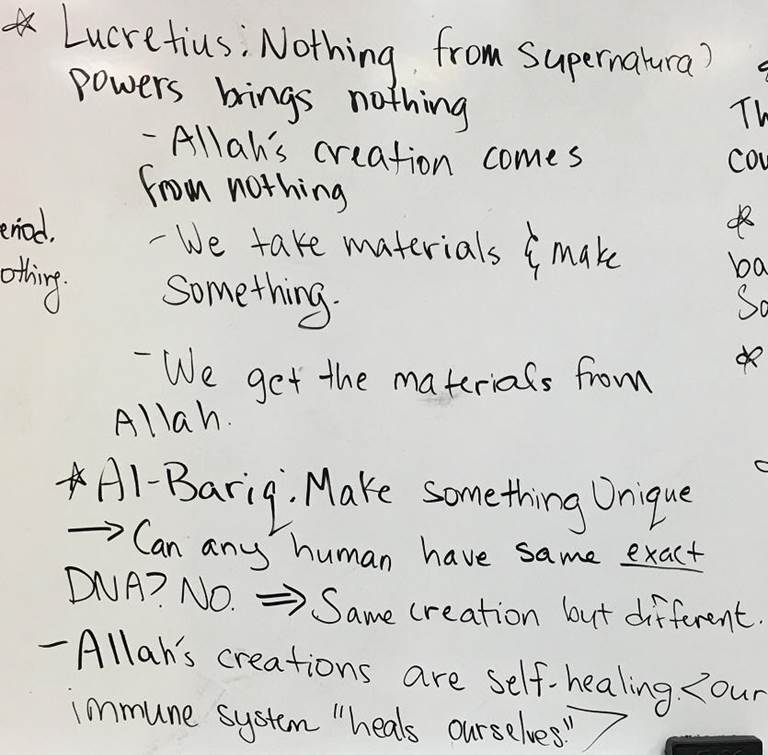 * Lucretius: Nothing from supernatural
powers brings nothing
- Allah's creation comes
from nothing
- We take materials & make
Something.
- We get the materials from
Allah.
* Al-Bariq: Make something Unique
→ Can any human have same exact
DNA? No. ⇒ Same creation but different.
- Allah's creations are self-healing. <our
immune system "heals ourselves.">
eriod.
othing.
Th
cou
*
ba
So
*